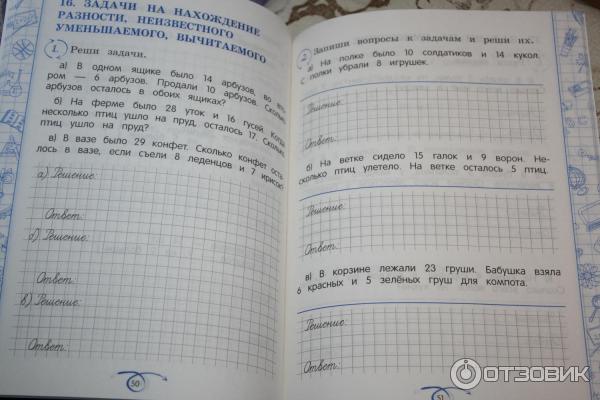 16. ЗАДАЧИ НА НАХОЖДЕНИЕ
РАЗНОСТИ, НЕИЗВЕСТНОГО
УМЕНЬШАЕМОГО, ВЫЧИТАЕМОГО
1. Реши задачи.
а) В одном ящике было 14 арбузов, во вто-
ром — 6 арбузов. Продали 10 арбузов. Сколько
арбузов осталось в обоих ящиках?
б) На ферме было 28 уток и 16 гусей. Когда
несколько птиц ушло на пруд, осталось 17. Сколько
птиц ушло на пруд?
в) В вазе было 29 конфет. Сколько конфет оста-
лось в вазе, если съели 8 леденцов и 7 ирисок?
а) Решение:
Ответ:
б) Решение:
Ответ:
в) Решение:
Ответ:
50
2. Запиши вопросы к задачам и реши их.
а) На полке было 10 солдатиков и 14 кукол.
С полки убрали 8 игрушек.
Решение:
Ответ:
б) На ветке сидело 15 галок и 9 ворон. Не-
сколько птиц улетело. На ветке осталось 5 птиц.
Решение:
Ответ:
в) В корзине лежали 23 груши. Бабушка взяла
6 красных и 5 зелёных груш для компота.
Решение:
Ответ:
51
ОТЗОВИК